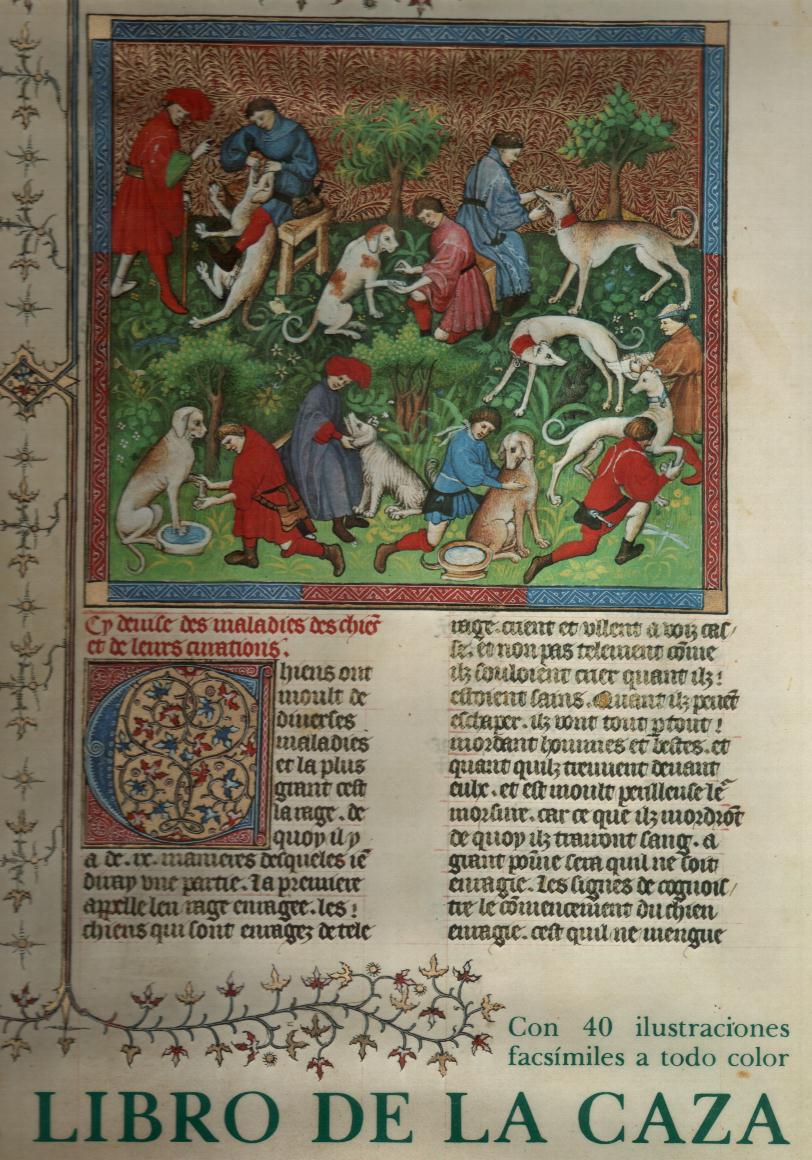 Cy deuise des maladies des chiēs
et de leurs curations.
Chiens ont
moult de
diuerses
maladies
et la plus
grant cest
la rage. de
quoy il y
a de .ix. manieres desqueles ie
diray vne partie. La premiere
appelle len rage enragee. les
chiens qui sont enragez de tele
rage. crient et vllent a voiz cas/
se. et non pas telement cōme
ilz souloient crier quant ilz
estoient sains. Quant ilz peuēt
eschaper. ilz vont tout ptout
mordant hommes et bestes. et
quant quilz treuuent deuant
eulx. et est moult perilleuse leˉ
morsure. car ce que ilz mordrōt
de quoy ilz trairont sang. a
grant poine sera quil ne soit
enragie. Les signes de cognois/
tre le cōmencement du chien
enragie. cest quil ne mengue
Con 40 ilustraciones
facsímiles a todo color
LIBRO DE LA CAZA